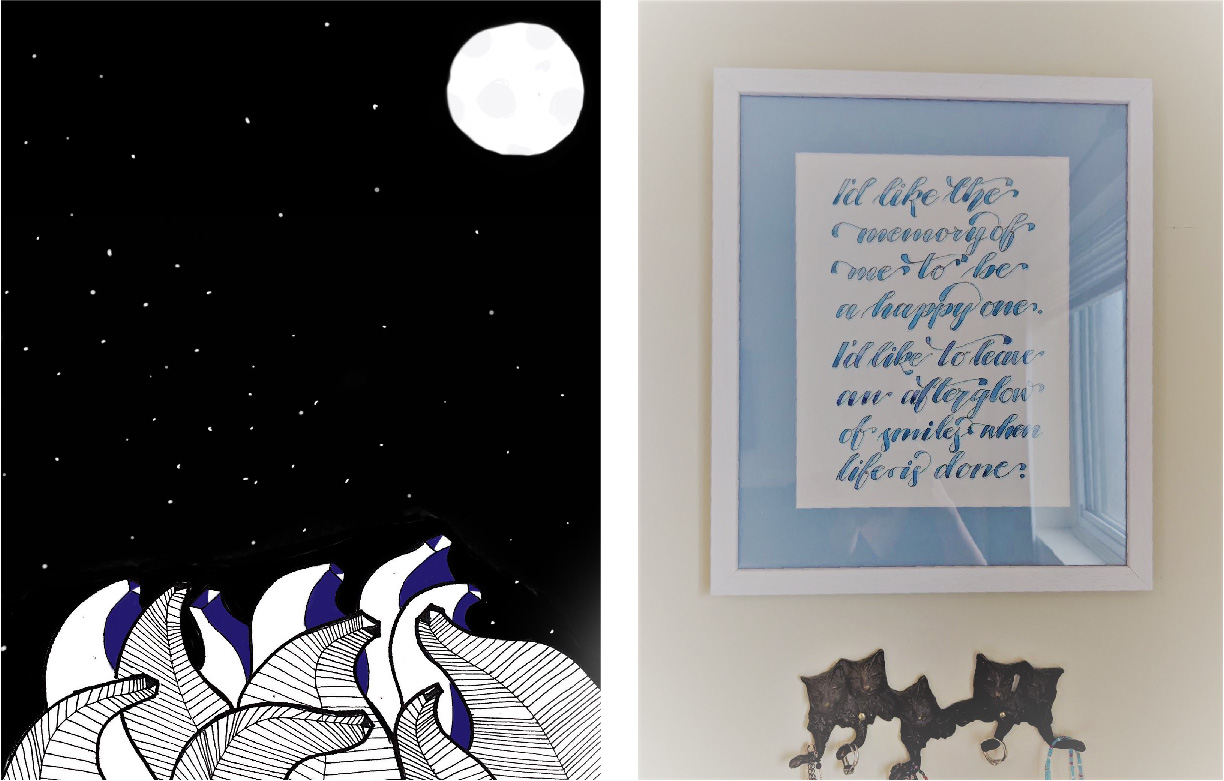 I'd like the
memory of
me to be
a happy one.
I'd like to leave
an afterglow
of smiles when
life is done.